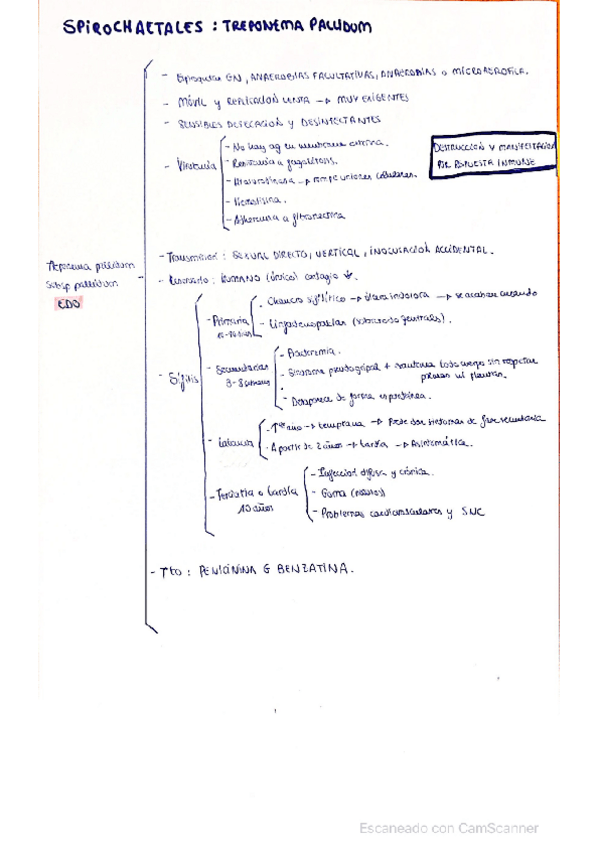 SPIROCHAETALES : TREPONEMA PALLIDUM
- Espiroquetas GN, ANAEROBIAS FACULTATIVAS, ANAEROBIAS o MICROAEROFILA.
- MÓVIL y REPLICACIÓN LENTA → MUY EXIGENTES
- SENSIBLES DESECACIÓN y DESINFECTANTES
- Virulencia
- No hay ag en membrana externa.
- Resistencia a fagocitosis.
- Hialuronidasa → rompe uniones celulares.
- Hemolisina.
- Adherencia a fibronectina
DESTRUCCIÓN Y MANIFESTACIÓN
POR RESPUESTA INMUNE
- Transmisión : SEXUAL DIRECTO, VERTICAL, INOCULACIÓN ACCIDENTAL.
Treponema pallidum
Subsp pallidum
EDO
- Reservorio : HUMANO (único) contagio ↓.
- Sífilis
- Primaria
- Chancro sifilítico → úlcera indolora → se acaban curando
- Linfadenopatías
- Secundarias
- Bacteremia.
- Síndrome pseudogripal + exantema todo cuerpo sin respetar
palmas ni plantas.
- Desaparece de forma espontánea.
- Latencia
- 1er año → temprana → Puede dar síntomas de fase secundaria
- A partir de 2 años → tardía → Asintomática.
- Terciaria o tardía
10 años
- Infección difusa y crónica.
- Goma
- Problemas cardiovasculares y SNC
- Tto : PENICININA G BENZATINA.
Escaneado con CamScanner